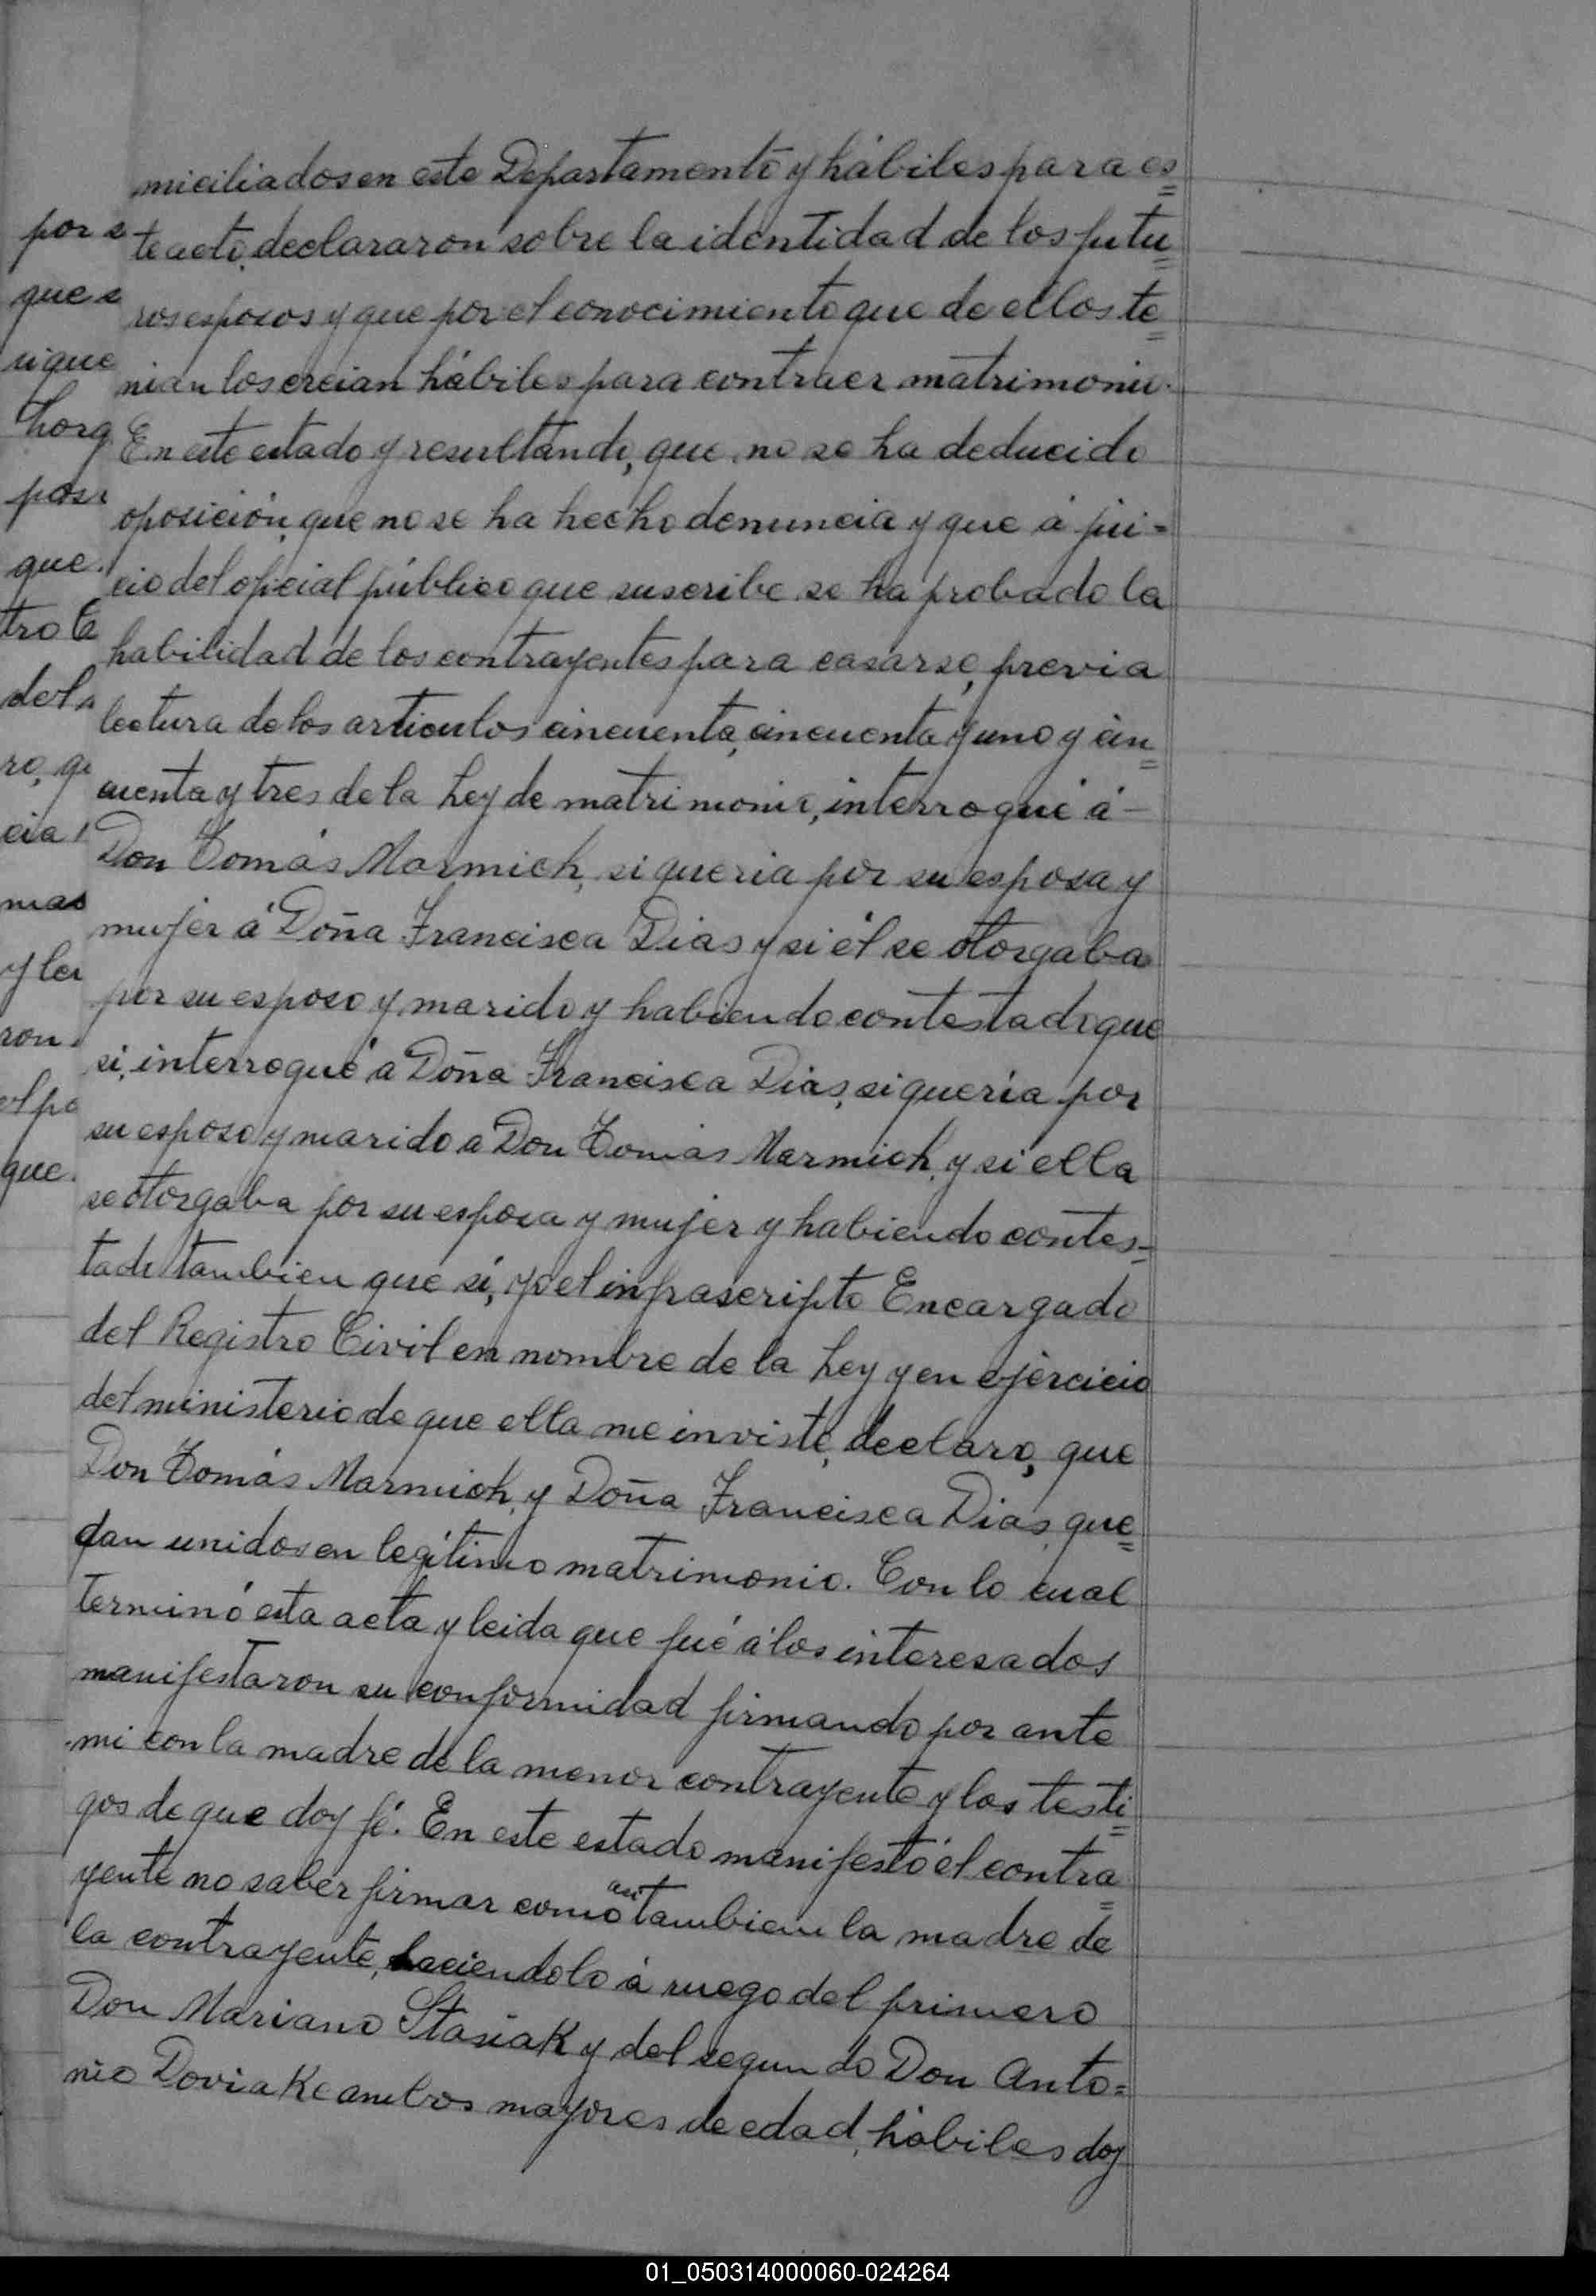 miciliados en este Departamento y hábiles para es=
te acto, declararon sobre la identidad de los futu=
ros esposos y que por el conocimiento que de ellos te=
nian los creian hábiles para contraer matrimonio.
En este estado y resultando, que no se ha deducido
oposición, que no se ha hecho denuncia y que á jui=
cio del oficial público que suscribe se ha probado la
habilidad de los contrayentes para casarse, previa
lectura de los artículos cincuenta, cincuenta y uno y cin=
cuenta y tres de la Ley de matrimonio, interrogué á-
Don Tomás Marmich, si queria por su esposa y
mujer á Doña Francisca Dias y si él se otorgaba
por su esposo y marido y habiendo contestado que
si, interrogué a Doña Francisca Dias, si quería por
su esposo y marido a Don Tomás Marmich, y si ella
se otorgaba por su esposa y mujer y habiendo contes=
tado tambien que si, yo el infrascripto Encargado
del Registro Civil en nombre de la Ley y en ejercicio
del ministerio de que ella me inviste, declaro, que
Don Tomás Marmich, y Doña Francisca Dias, que=
dan unidos en legítimo matrimonio. Con lo cual
terminó esta acta y leida que fué á los interesados
manifestaron su conformidad firmando por ante
mi con la madre de la menor contrayente y los testi=
gos de que doy fé. En este estado manifestó el contra=
yente no saber firmar como así tambien la madre de
la contrayente, haciendolo á ruego del primero
Don Mariano Stasiak y del segundo Don Anto=
nio Doviake ambos mayores de edad, hábiles doy
por
que
que
pos
que
tro
del
cia
mas
y
ron
que
01_050314000060-024264